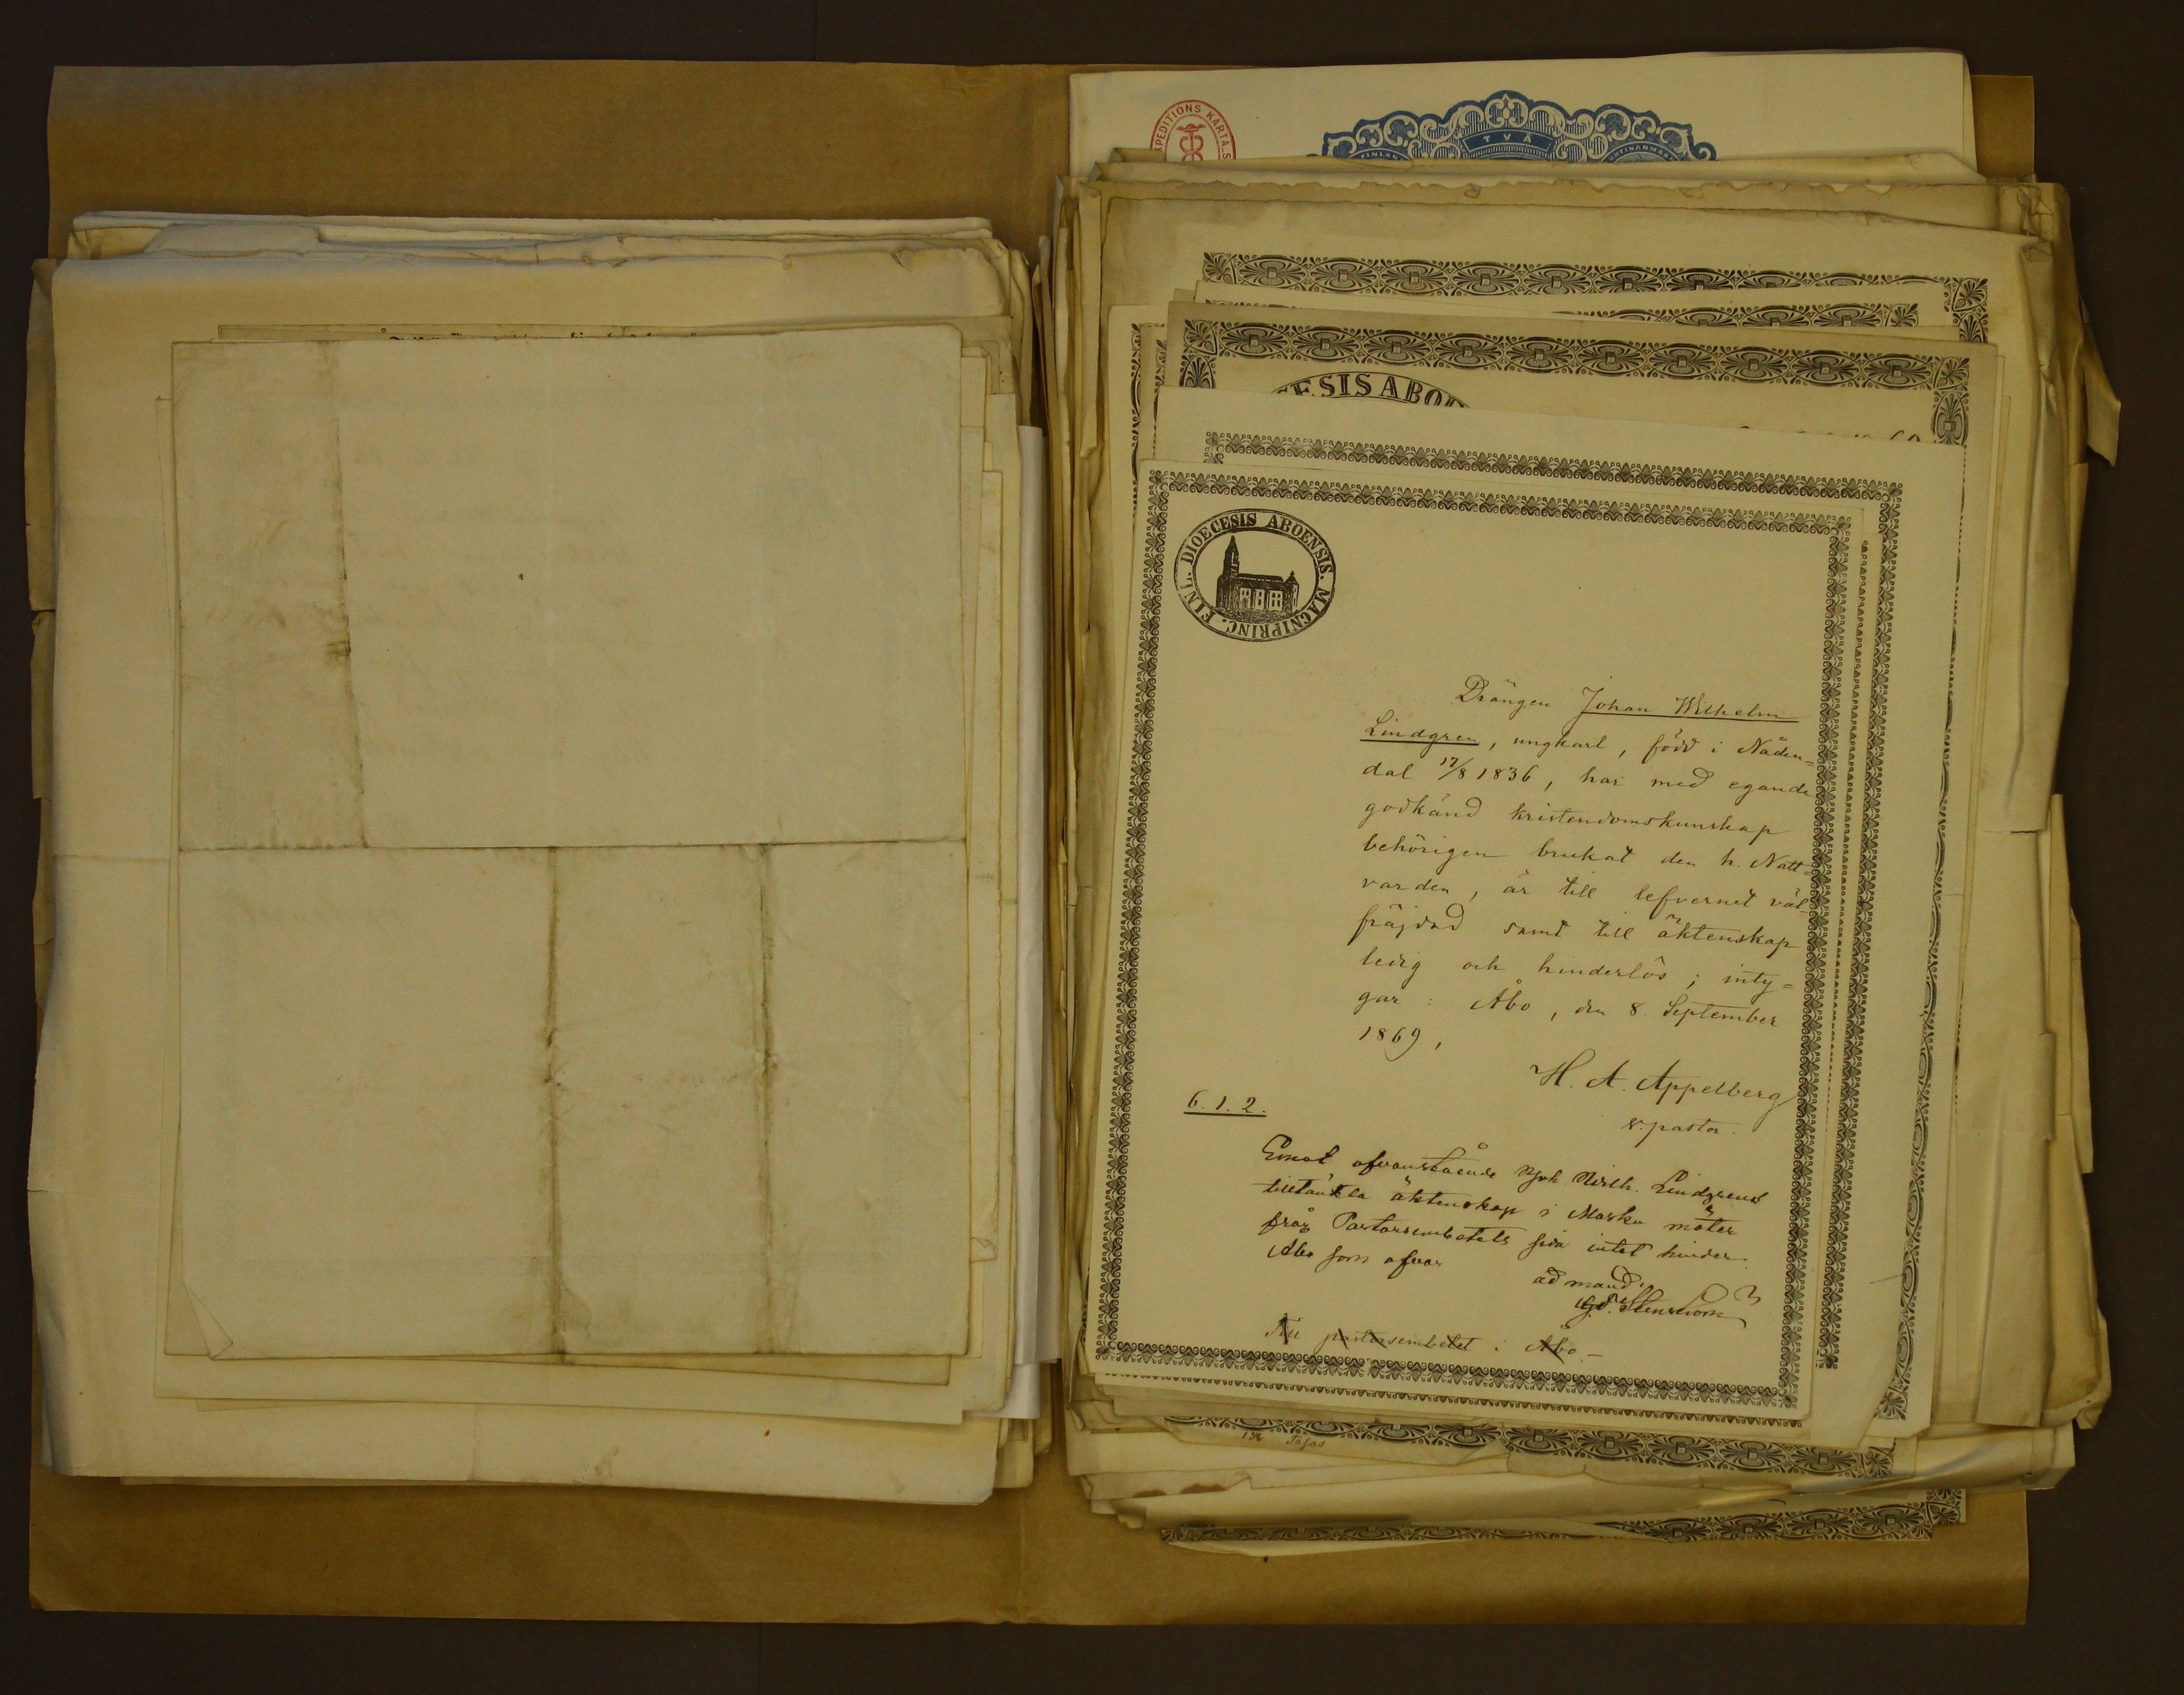 EXPEDITIONS KARTA.S
TVÅ
FINLAN
ESIS ABO
DIOECESIS ABOENSIS. MAGNIPRINC. FINL.
Drängen Johan Wilhelm
Lindgren, ungkarl, född i Nåden=
dal 17/8 1836, har med egande
godkänd kristendomskunskap
behörigen brukat den h. Natt=
varden, är till lefvernet väl=
fräjdad samt till äktenskap
ledig och hinderlös; inty=
gar: Åbo, den 8. September
1869,
H. A. Appelberg
v. pastor.
6. 1. 2.
Emot ofvanstående Joh. Wilh. Lindgrens
tilltänkta äktenskap i Masku möter
från Pastorsembetets sida intet hinder.
Åbo som ofvan
ad mand.
Till pastorsembetet i Åbo.–